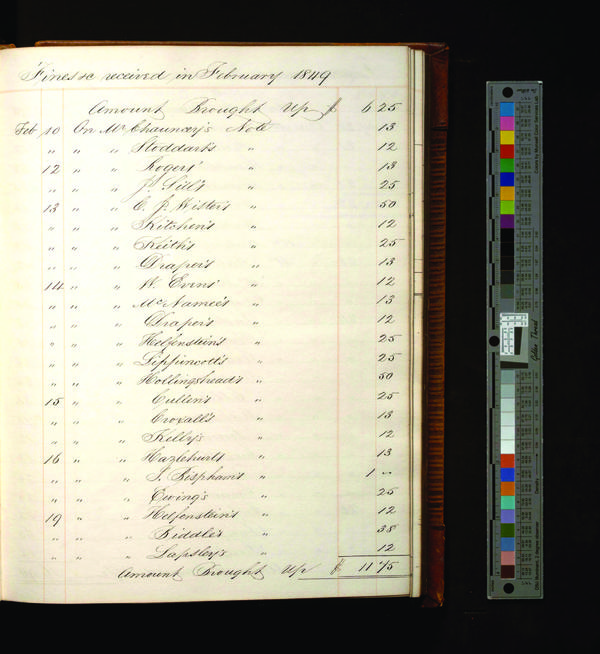 Fines &c received in February 1849
Amount Brought Up $ 6 25
Feb 10 On Mr Chauncey's Note 13
" " " " Stoddart's " 12
12 " " Rogers' " 13
" " " " J. Sill's " 25
13 " " C. J. Wister's " 50
" " " " Kitchen's " 12
" " " " Keith's " 25
" " " " Draper's " 13
14 " " W. Evins' " 12
" " " " McNamee's " 13
" " " " Draper's " 12
" " " " Helfenstein's " 25
" " " " Lippincott's " 25
" " " " Hollingshead's " 50
15 " " Cullen's " 25
" " " " Crovall's " 13
" " " " Kelly's " 12
16 " " Hazlehurst's " 13
" " " " J. Bispham's " 1 "
" " " " Ewing's " 25
19 " " Helfenstein's " 12
" " " " Biddle's " 38
" " " " Lapsley's " 12
Amount Brought Up $ 11 75